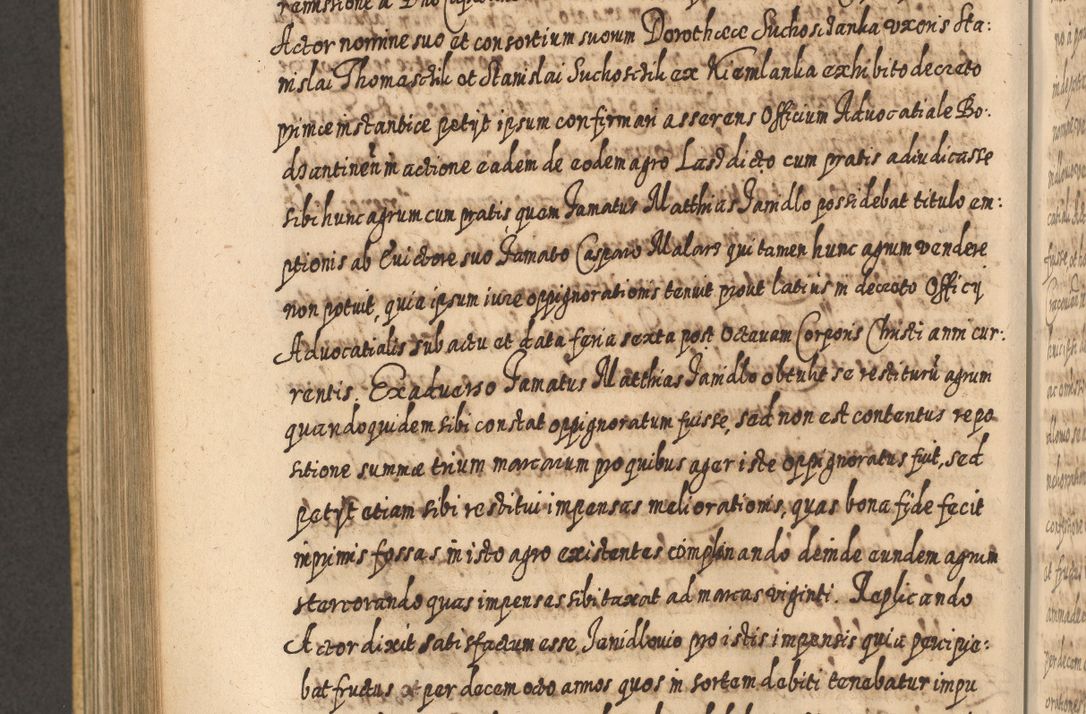 Actor nomine suo et consortium suorum Dorotheæ Suchosczanka uxoris Sta:
nislai Thomasczik et Stanislai Suchosczik ex Niemlanka exhibito decreto
primæ instantiæ petyt ipsum confirmari asserens Officium Advocatiale Bo-
dzantinen̄ in actione eadem de eodem agro Lasd dicto cum pratis adiudicasse
sibi hunc agrum cum pratis, quem Famatus Matthias Janidlo possidebat titulo em:
ptionis ab Evictore suo Famato Casparo Malars qui tamen hunc agrum vendere
non potuit, quia ipsum iure oppignorationis tenuit prout latius in decreto Officij
Advocatialis sub actu et data feria sexta post Octavam Corporis Christi anni cur:
rentis. Ex adverso Famatus Matthias Janidlo obtulit se restiturū agrum
quandoquidem sibi constat oppignoratum fuisse, sed non est contentus repo
sitione summæ trium marcarum pro quibus ager iste oppignoratus fuit, sed
petyt etiam sibi restitui impensas meliorationis, quas bona fide fecit
inprimis fossas in isto agro existentes complanando deinde eundem agrum
stercorando quas impensas sibi taxat ad marcas viginti. Replicando
Actor dixit satisfactum esse Janidlovio pro istis impensis quia percipie:
bat fructus per decem octo annos quos in sortem debiti tenebatur impu